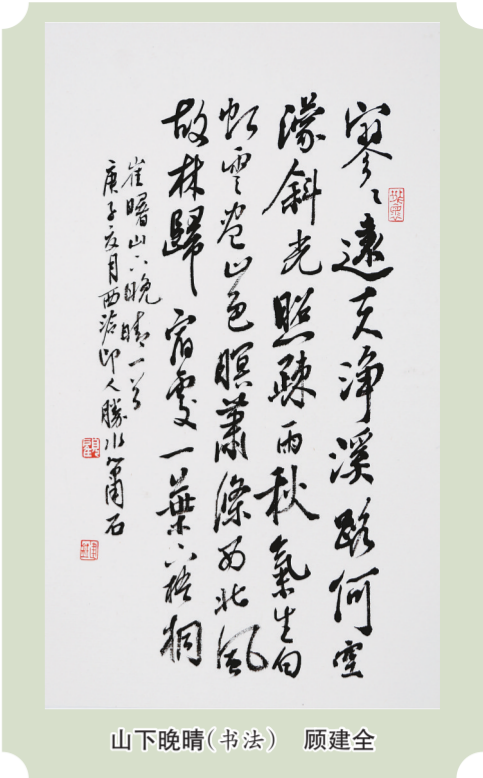 寥〻遠天净溪路何空
濛斜光照疎雨秋氣生白
虹雲卷山色暝蕭條西北風
故林歸宿處一葉下梧桐
崔曙山下晚晴一首
庚子夏月西泠印人勝水簫石
山下晚晴(书法) 顾建全